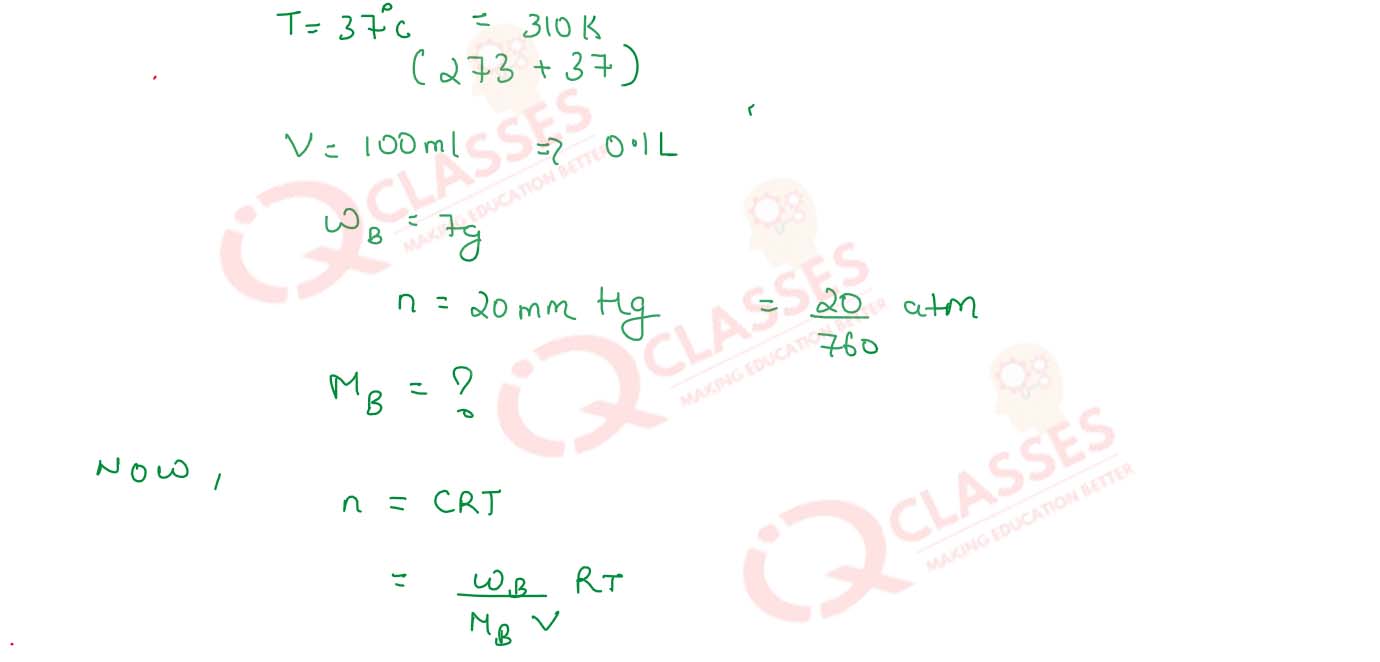 T = 37°C = 310 K
(273 + 37)
V = 100 ml ⇒ 0.1 L
W_B = 7g
n = 20 mm Hg = 20/760 atm
M_B = ?
Now,
n = CRT
= W_B/M_B V RT
iQ CLASSES
MAKING EDUCATION BETTER
iQ CLASSES
MAKING EDUCATION BETTER
iQ CLASSES
MAKING EDUCATION BETTER